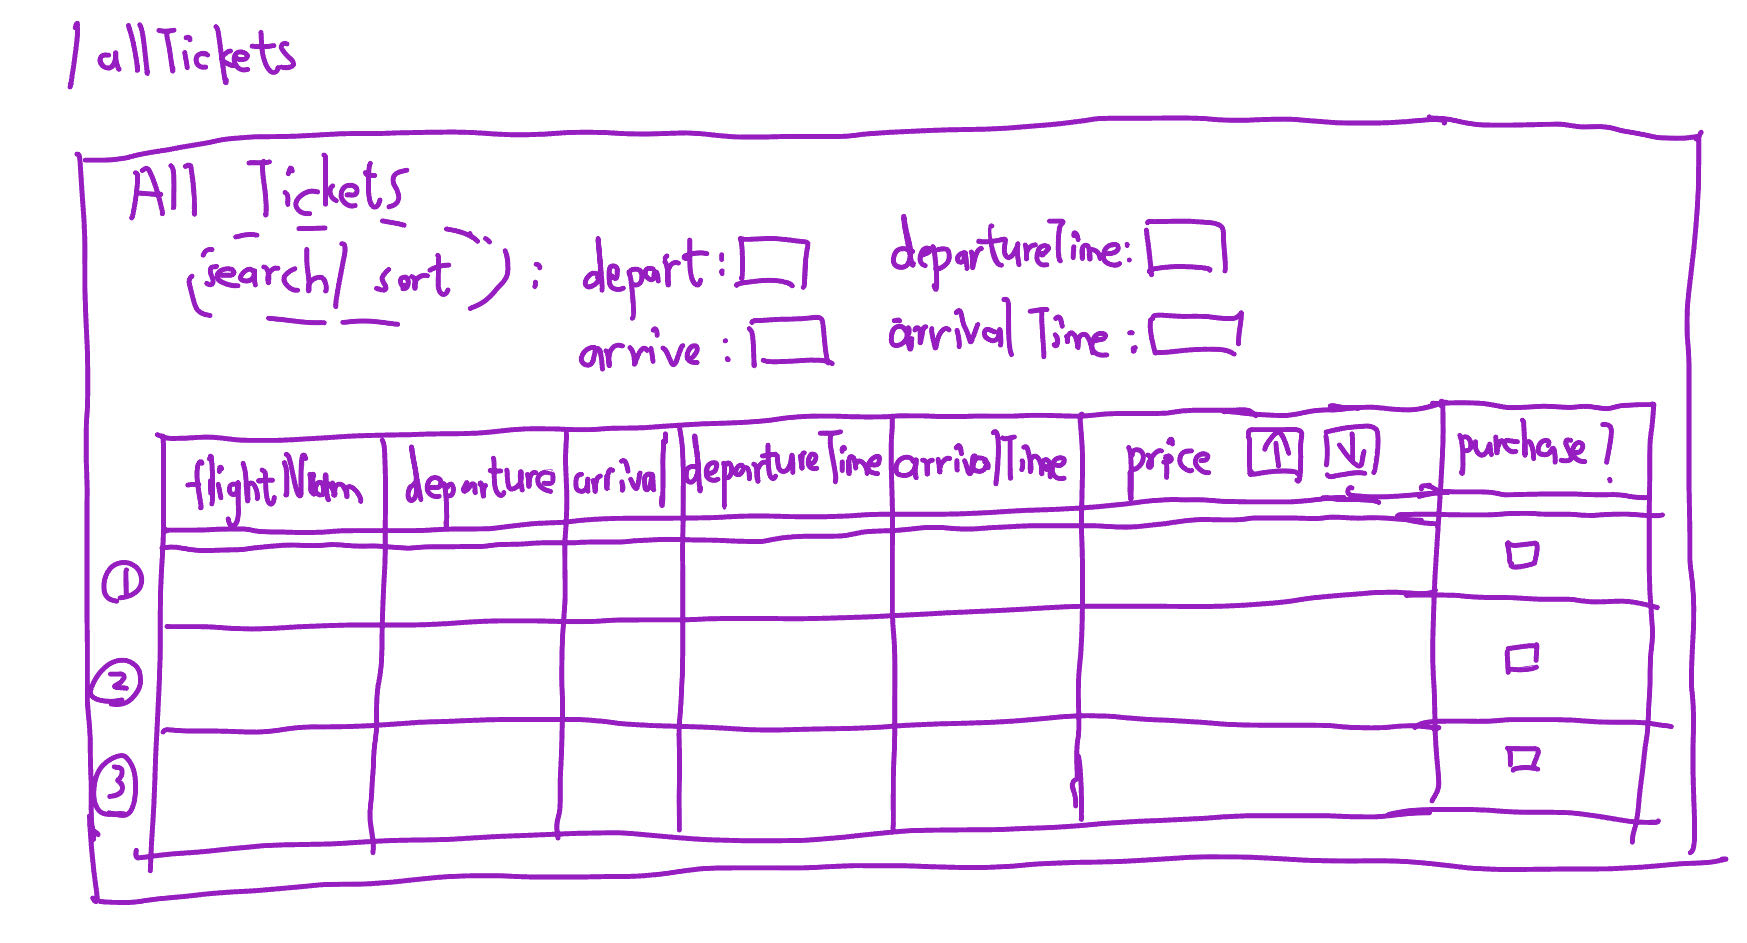 /allTickets
All Tickets
(search/ sort) : depart: departureTime:
arrive : arrivalTime:
flightNum departure arrival departureTime arrivalTime price ↑ ↓ purchase?
1
2
3